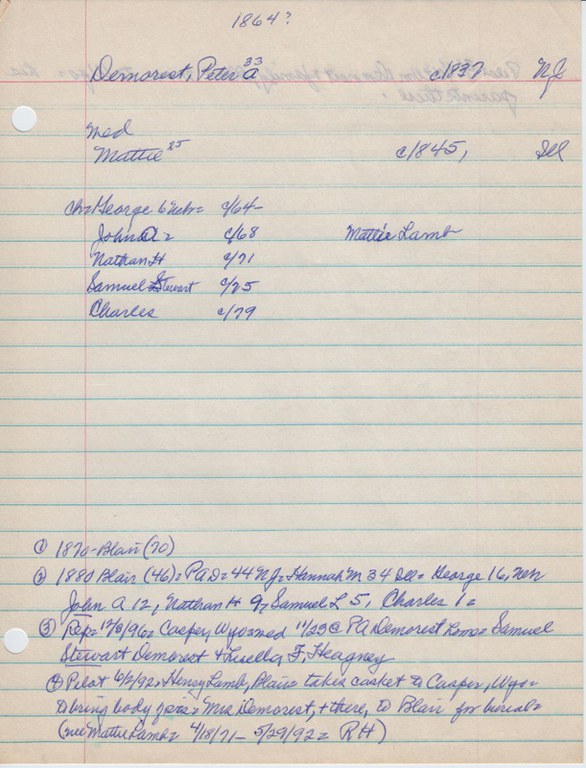 1864?
Demorest, Peter A 33 c1837 NJ
Med
Mattie 25 c1845, Ill
ch= George 6 Neb= c/64-
John A = c/68 Mattie Lamb
Nathan H c/71
Samuel Stewart c/75
Charles c/79
① 1870-Blair (70)
② 1880 Blair (46)= PAD= 44 NJ= Hannah M 34 Ill= George 16, Neb
John A 12, Nathan H 9, Samuel L 5, Charles 1=
③ Rep= 12/8/96= Casper, Wyo= med 11/25 @ PA Demorest home= Samuel
Stewart Demorest + Luella F. Heagney
④ Pilot 6/2/92= Henry Lamb, Blair= takes casket to Casper, Wyo=
to bring body of Mrs Demorest, there, to Blair for burial=
(nee Mattie Lamb= 4/18/71- 5/29/92= RH)